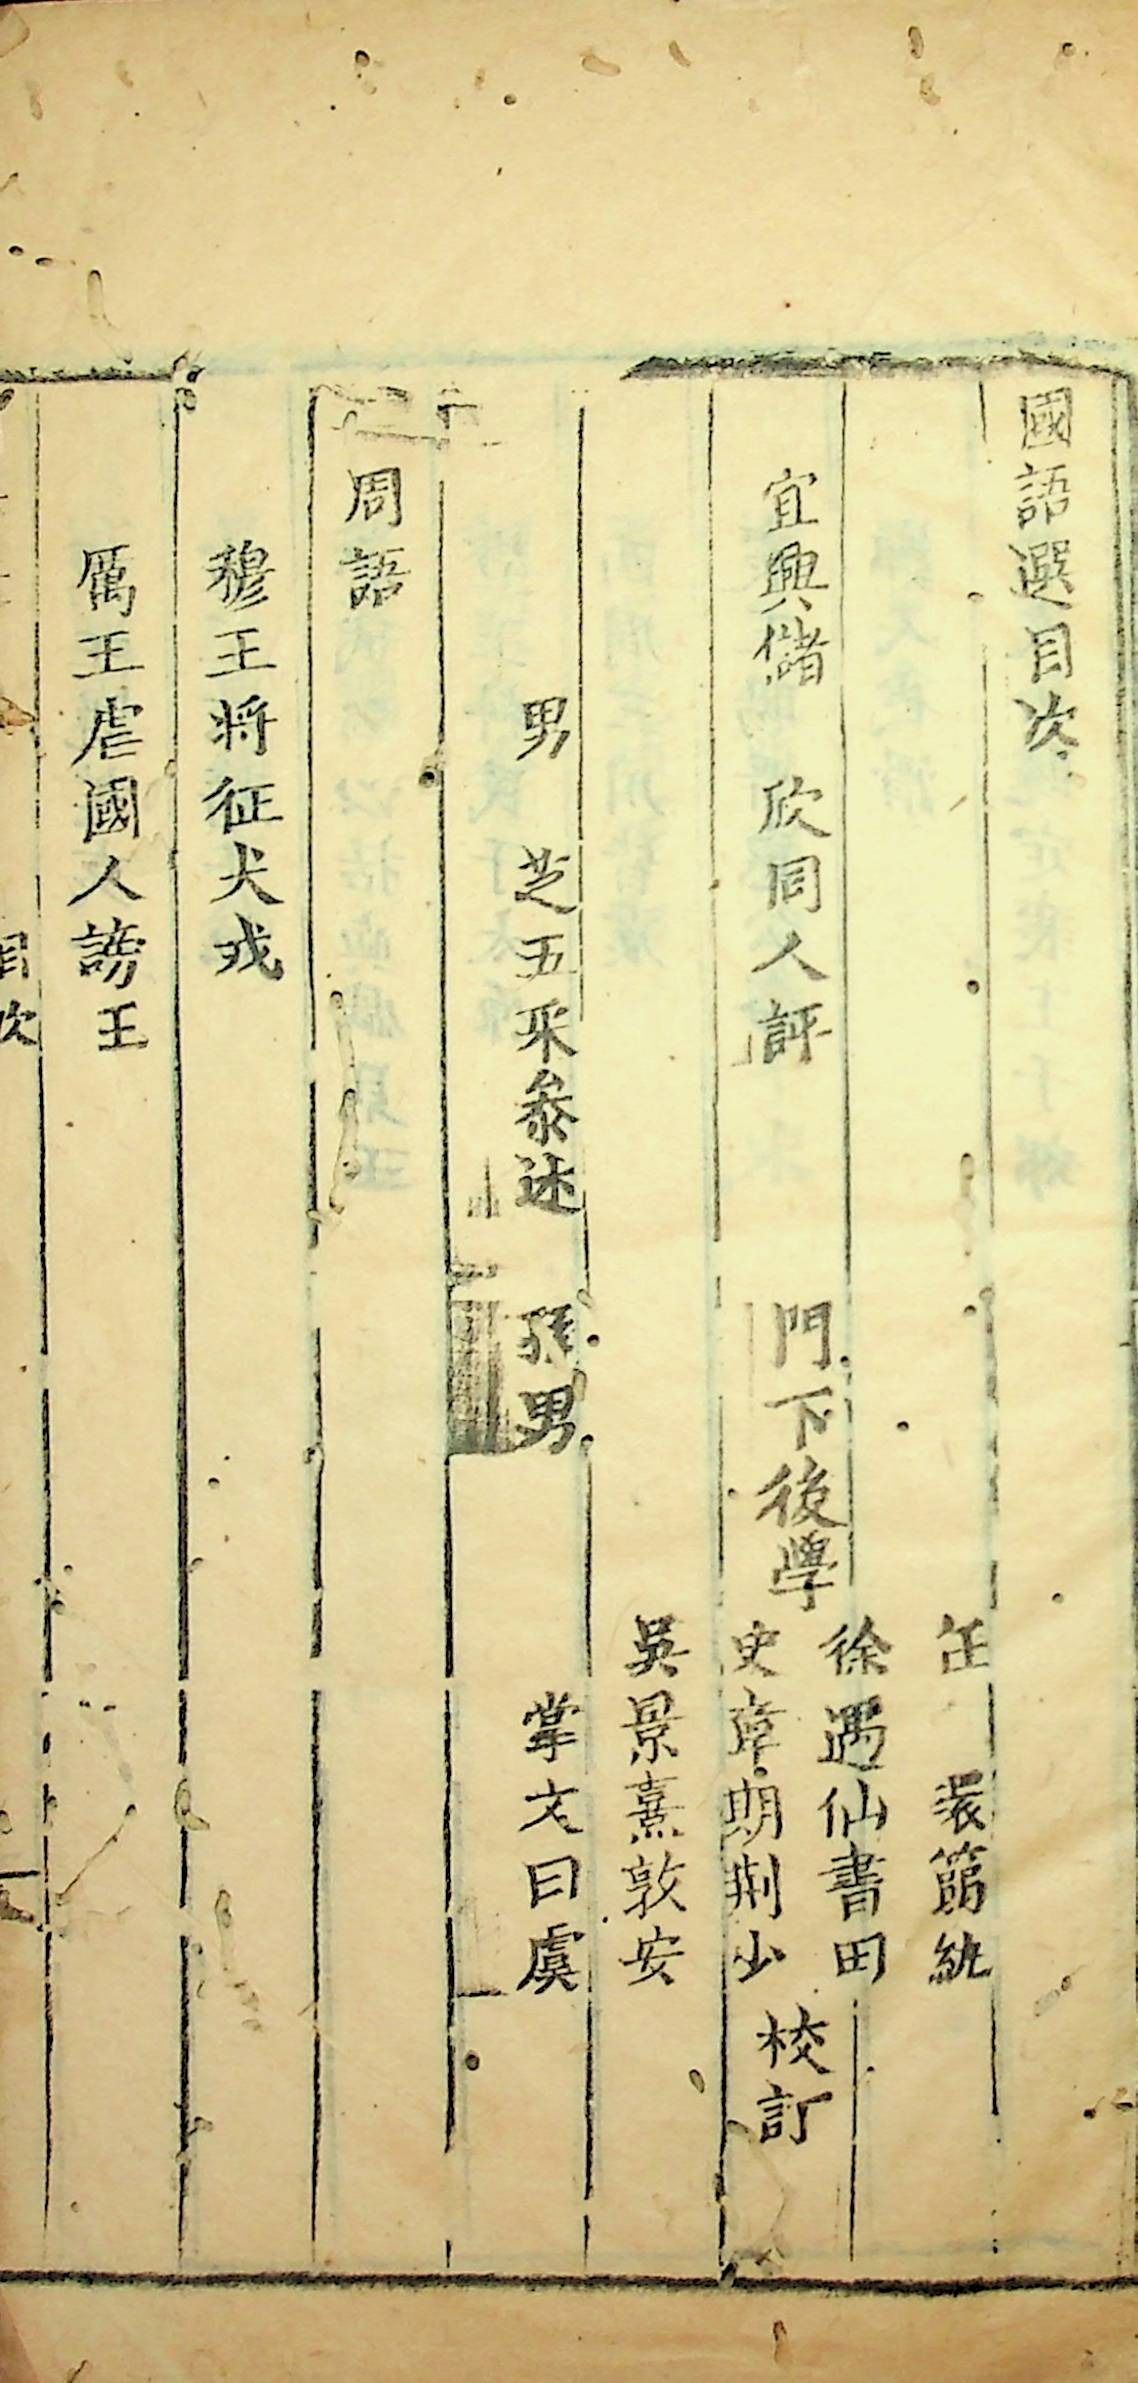 國語選目次
宜興儲 欣同人評 門下後學
任 環節紞
徐遇仙書田
史章期荆少
吳景熹敦安
校訂
男 芝五采叅述 孫男 掌文曰虞
周語
穆王將征犬戎
厲王虐國人謗王
目次